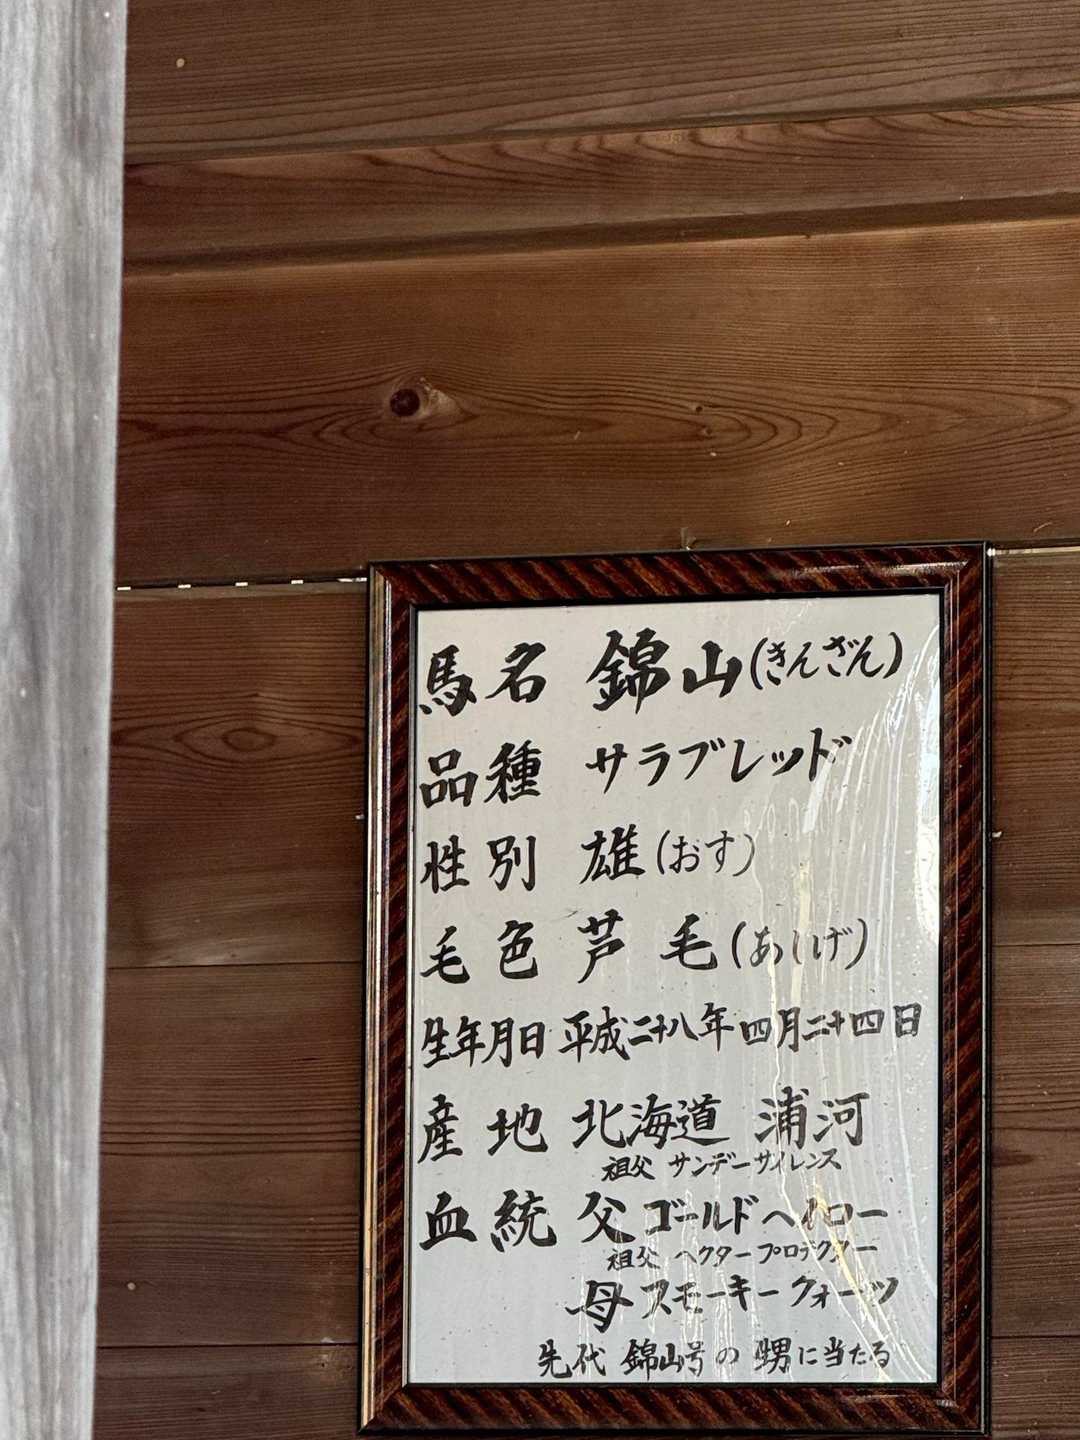 馬名 錦山(きんざん)
品種 サラブレッド
性別 雄(おす)
毛色 芦毛(あしげ)
生年月日 平成二十八年四月二十四日
産地 北海道 浦河
祖父 サンデーサイレンス
血統 父 ゴールドヘイロー
祖父 ヘクタープロテクター
母 スモーキークォーツ
先代 錦山号の甥に当たる